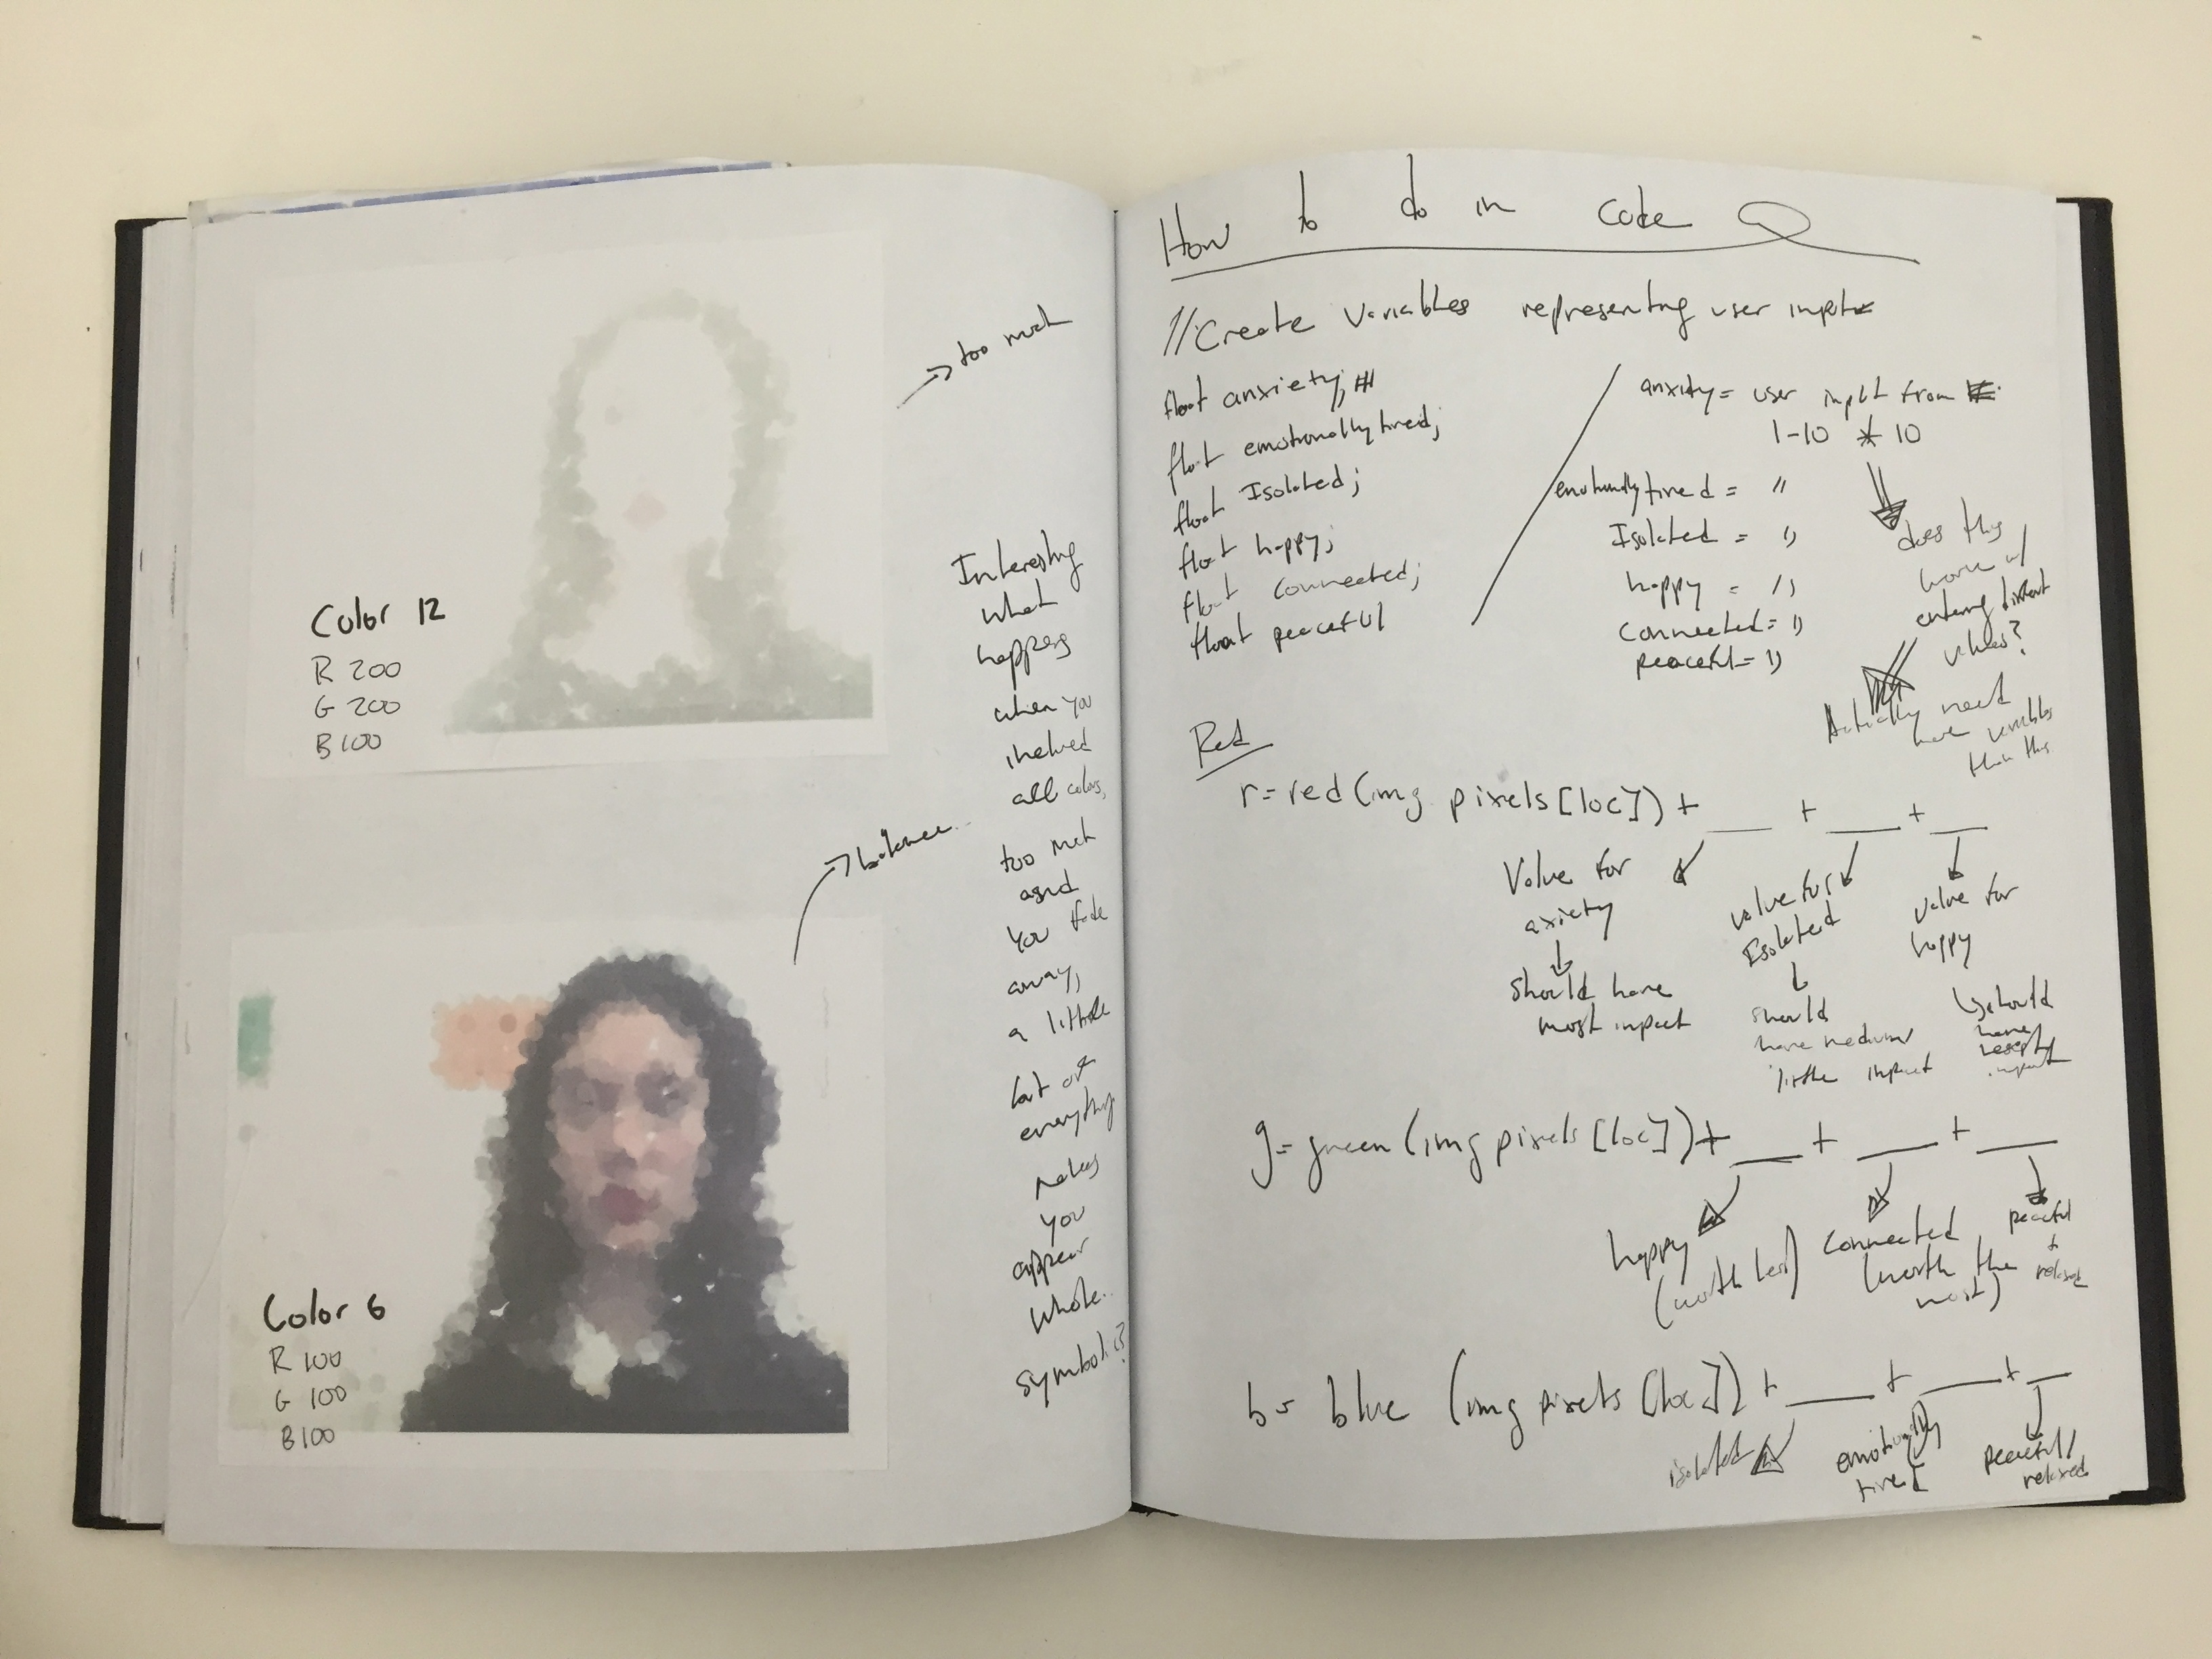 → too much
Color 12
R 200
G 200
B 100
Interesting
what
happens
when you
all colors,
too much
and
you fade
away,
a little
everything
makes
you
appear
whole..
symbolic?
→ balance
Color 6
R 100
G 100
B 100
How to do in code
//Create Variables representing user input
float anxiety;
float emotionallytired;
float Isolated;
float happy;
float connected;
float peaceful
anxity = user input from
1-10 * 10
emotionallytired = "
Isolated = "
happy = "
Connected = "
peaceful = "
does this
work w/
entering different
values?
Actually need
more variables
than this
Red
r = red (img pixels [loc]) + ___ + ___ + ___
Value for
axiety
should have
most impact
value for
Isolated
should
have medium
little impact
value for
happy
should
have
least
impact
g = green (img pixels [loc]) + ___ + ___ + ___
happy
(worth least)
connected
(worth the
most)
peaceful
+
relaxed
b = blue (img pixels [loc]) + ___ + ___ + ___
isolated
emotionally
tired
peaceful/
relaxed